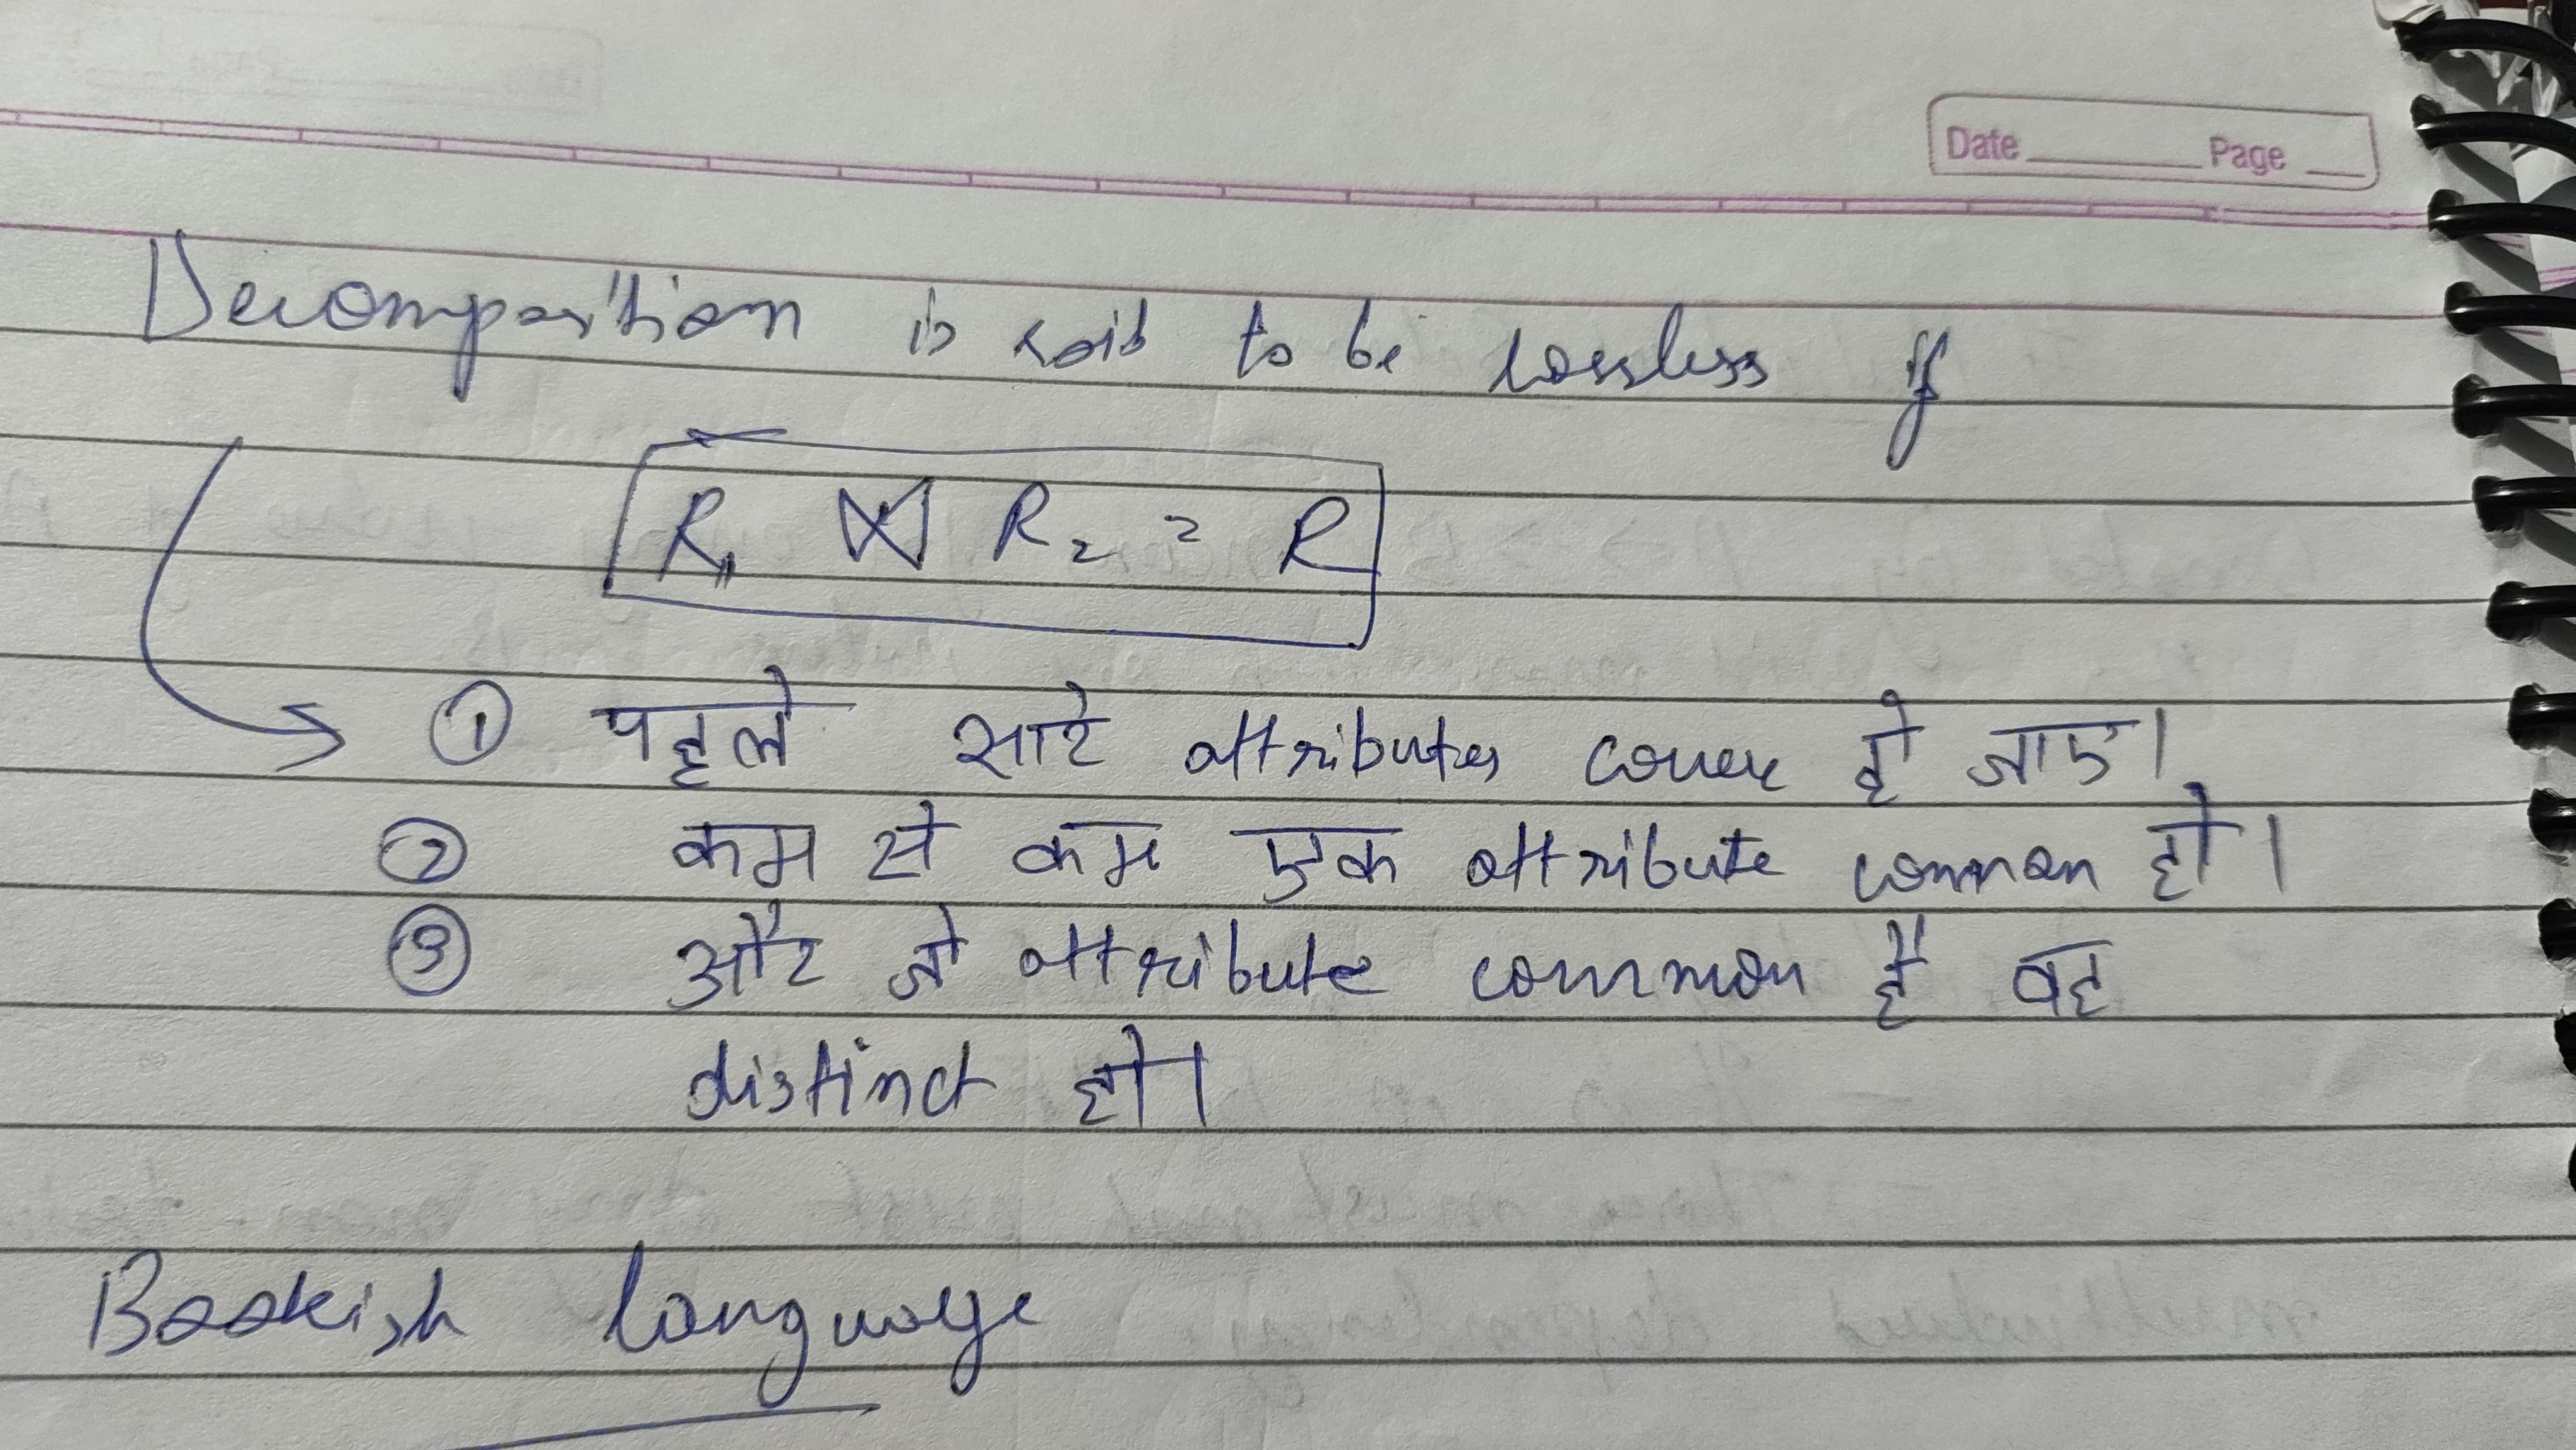 Date Page
Decomposition is said to be lossless if
R₁ ⋈ R₂ = R
① पहले सारे attributes cover हो जाए।
② कम से कम एक attribute common हो।
③ और जो attribute common है वह
distinct हो।
Bookish language